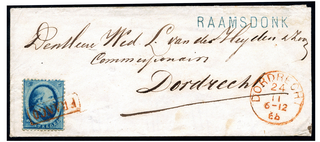 RAAMSDONK
Den Heere Wed L. van der Heyden & Zon
Commissionairs
Dordrecht
DORDRECHT
24
11
6-12
66
FRANCO